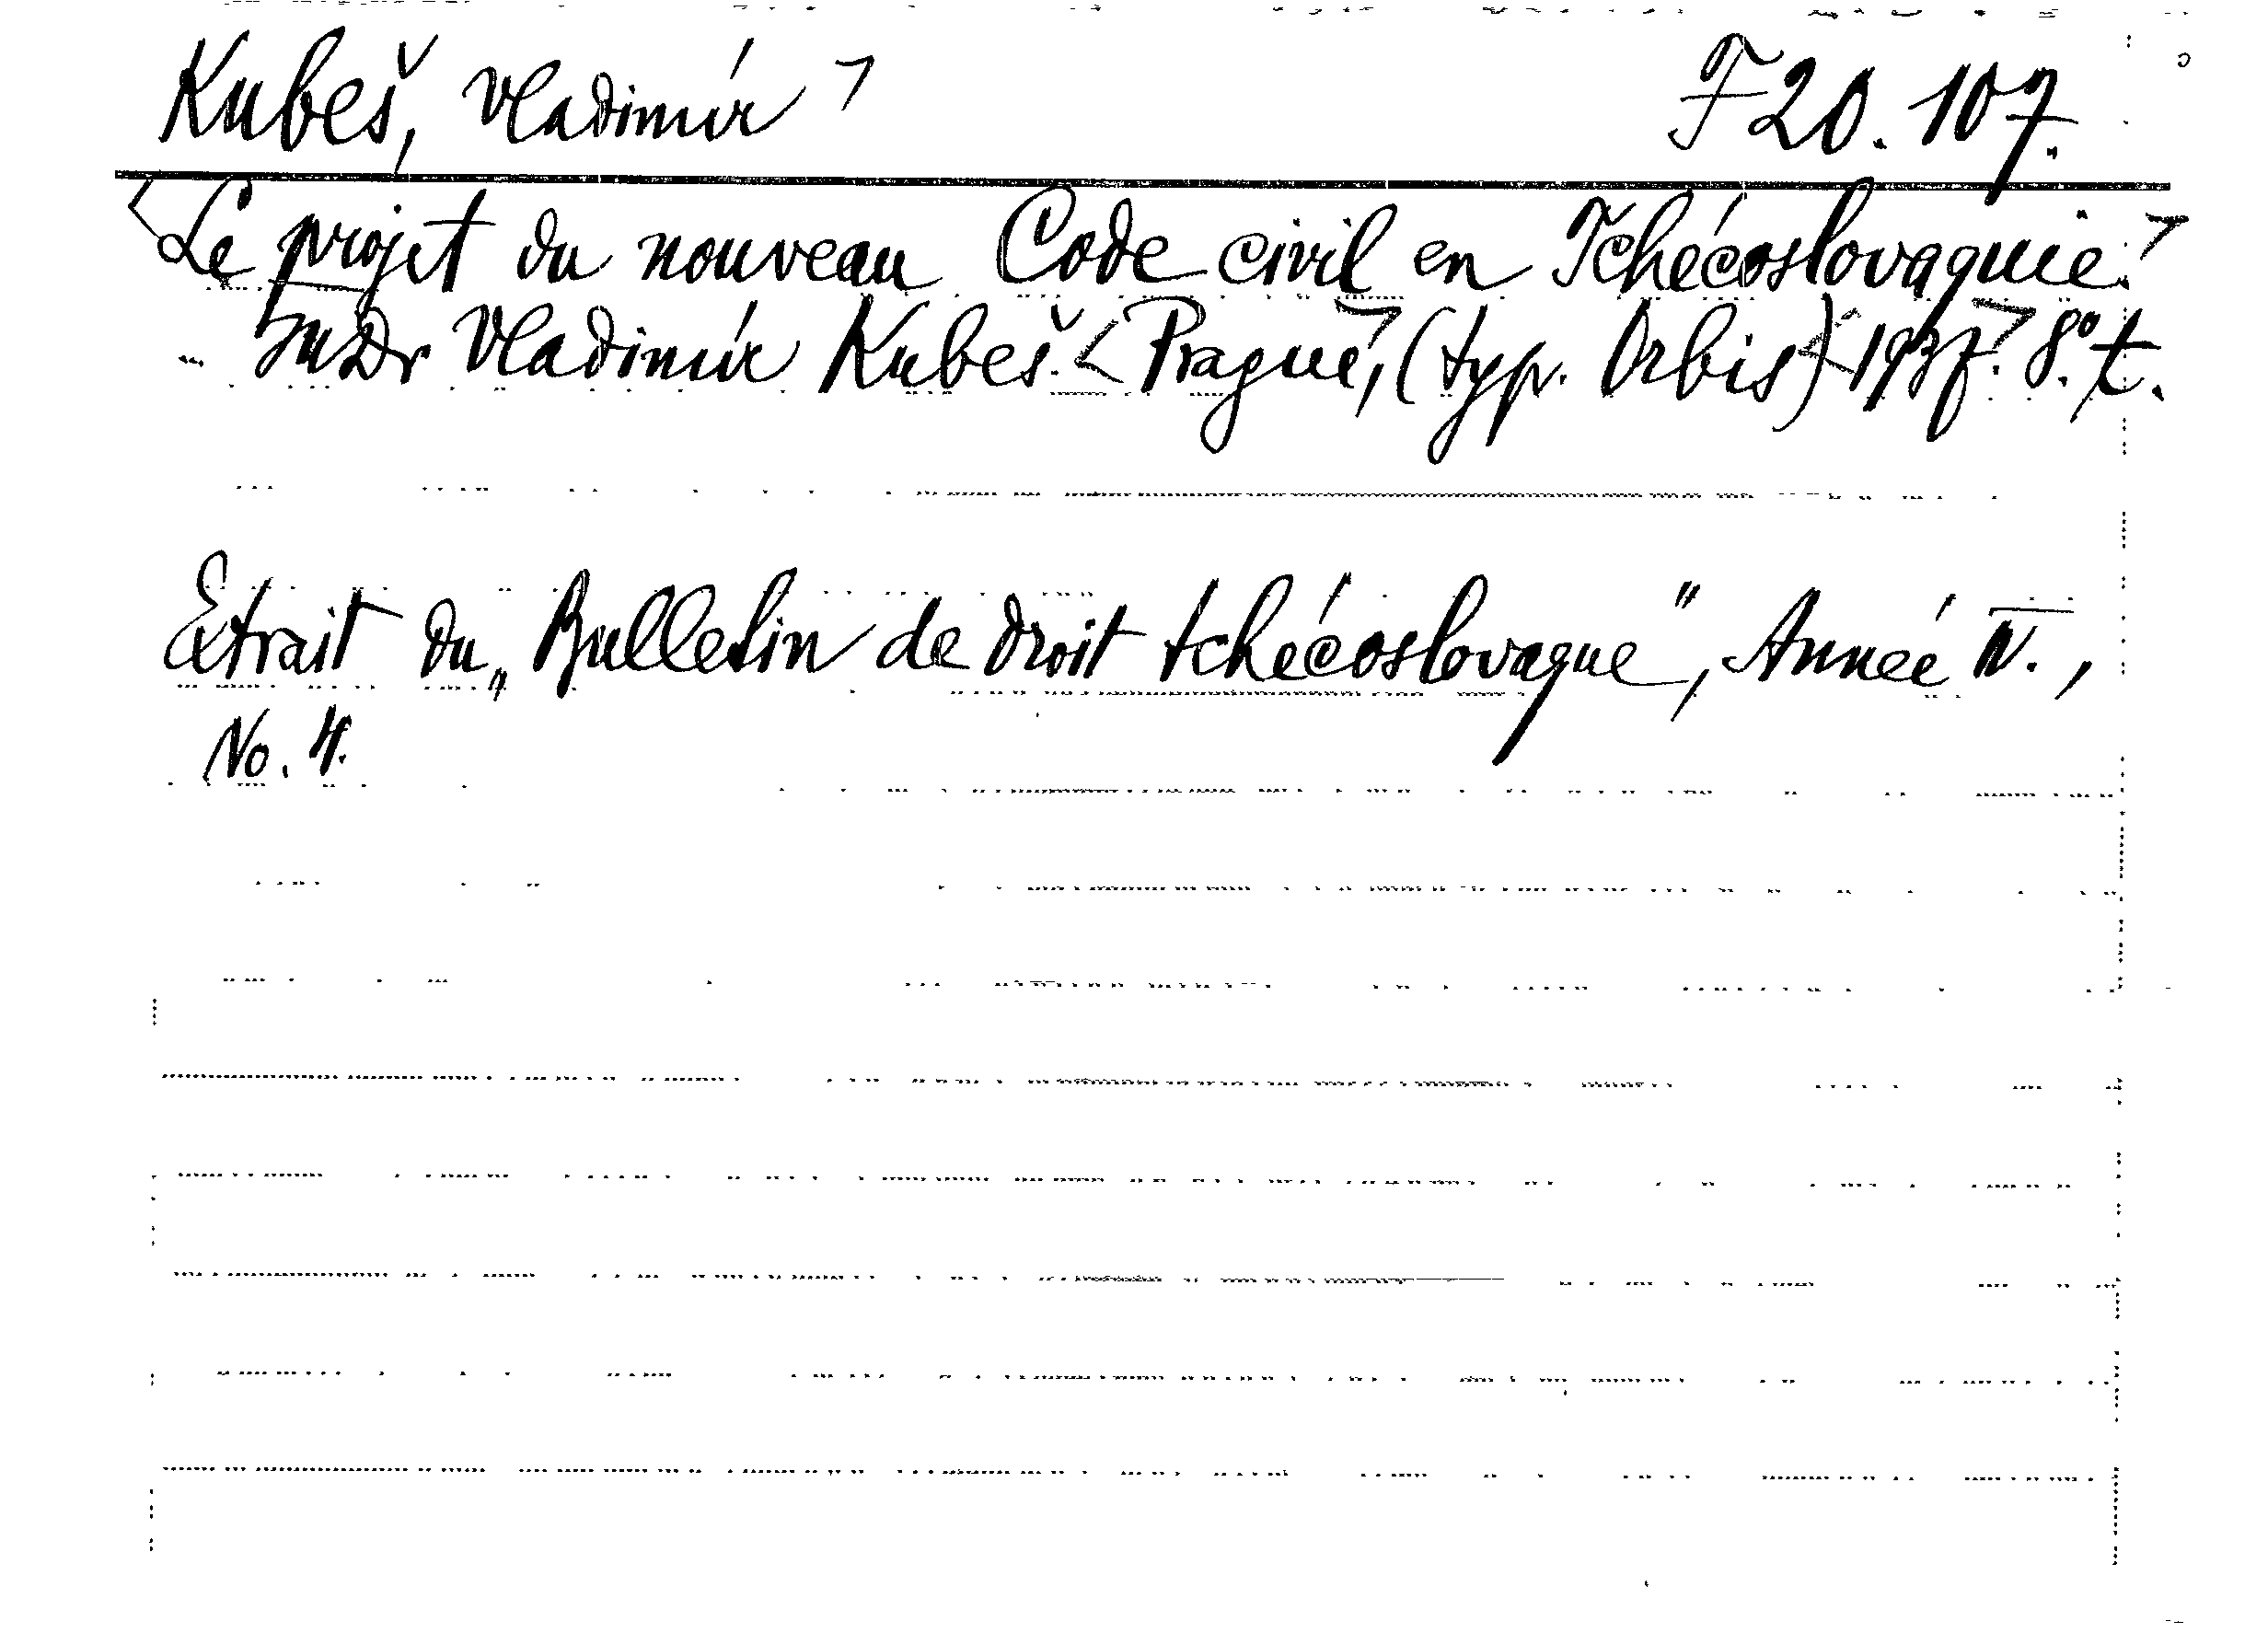 Kubeš, Vladimír > F 20.107.
<Le projet du nouveau Code civil en Tchécoslovaquie.>
JuDr Vladimír Kubeš. <Prague,> (typ. Orbis) <1937.> 8°. t.
Extrait du „Bulletin de droit tchécoslovaque", Année IV.,
No. 4.